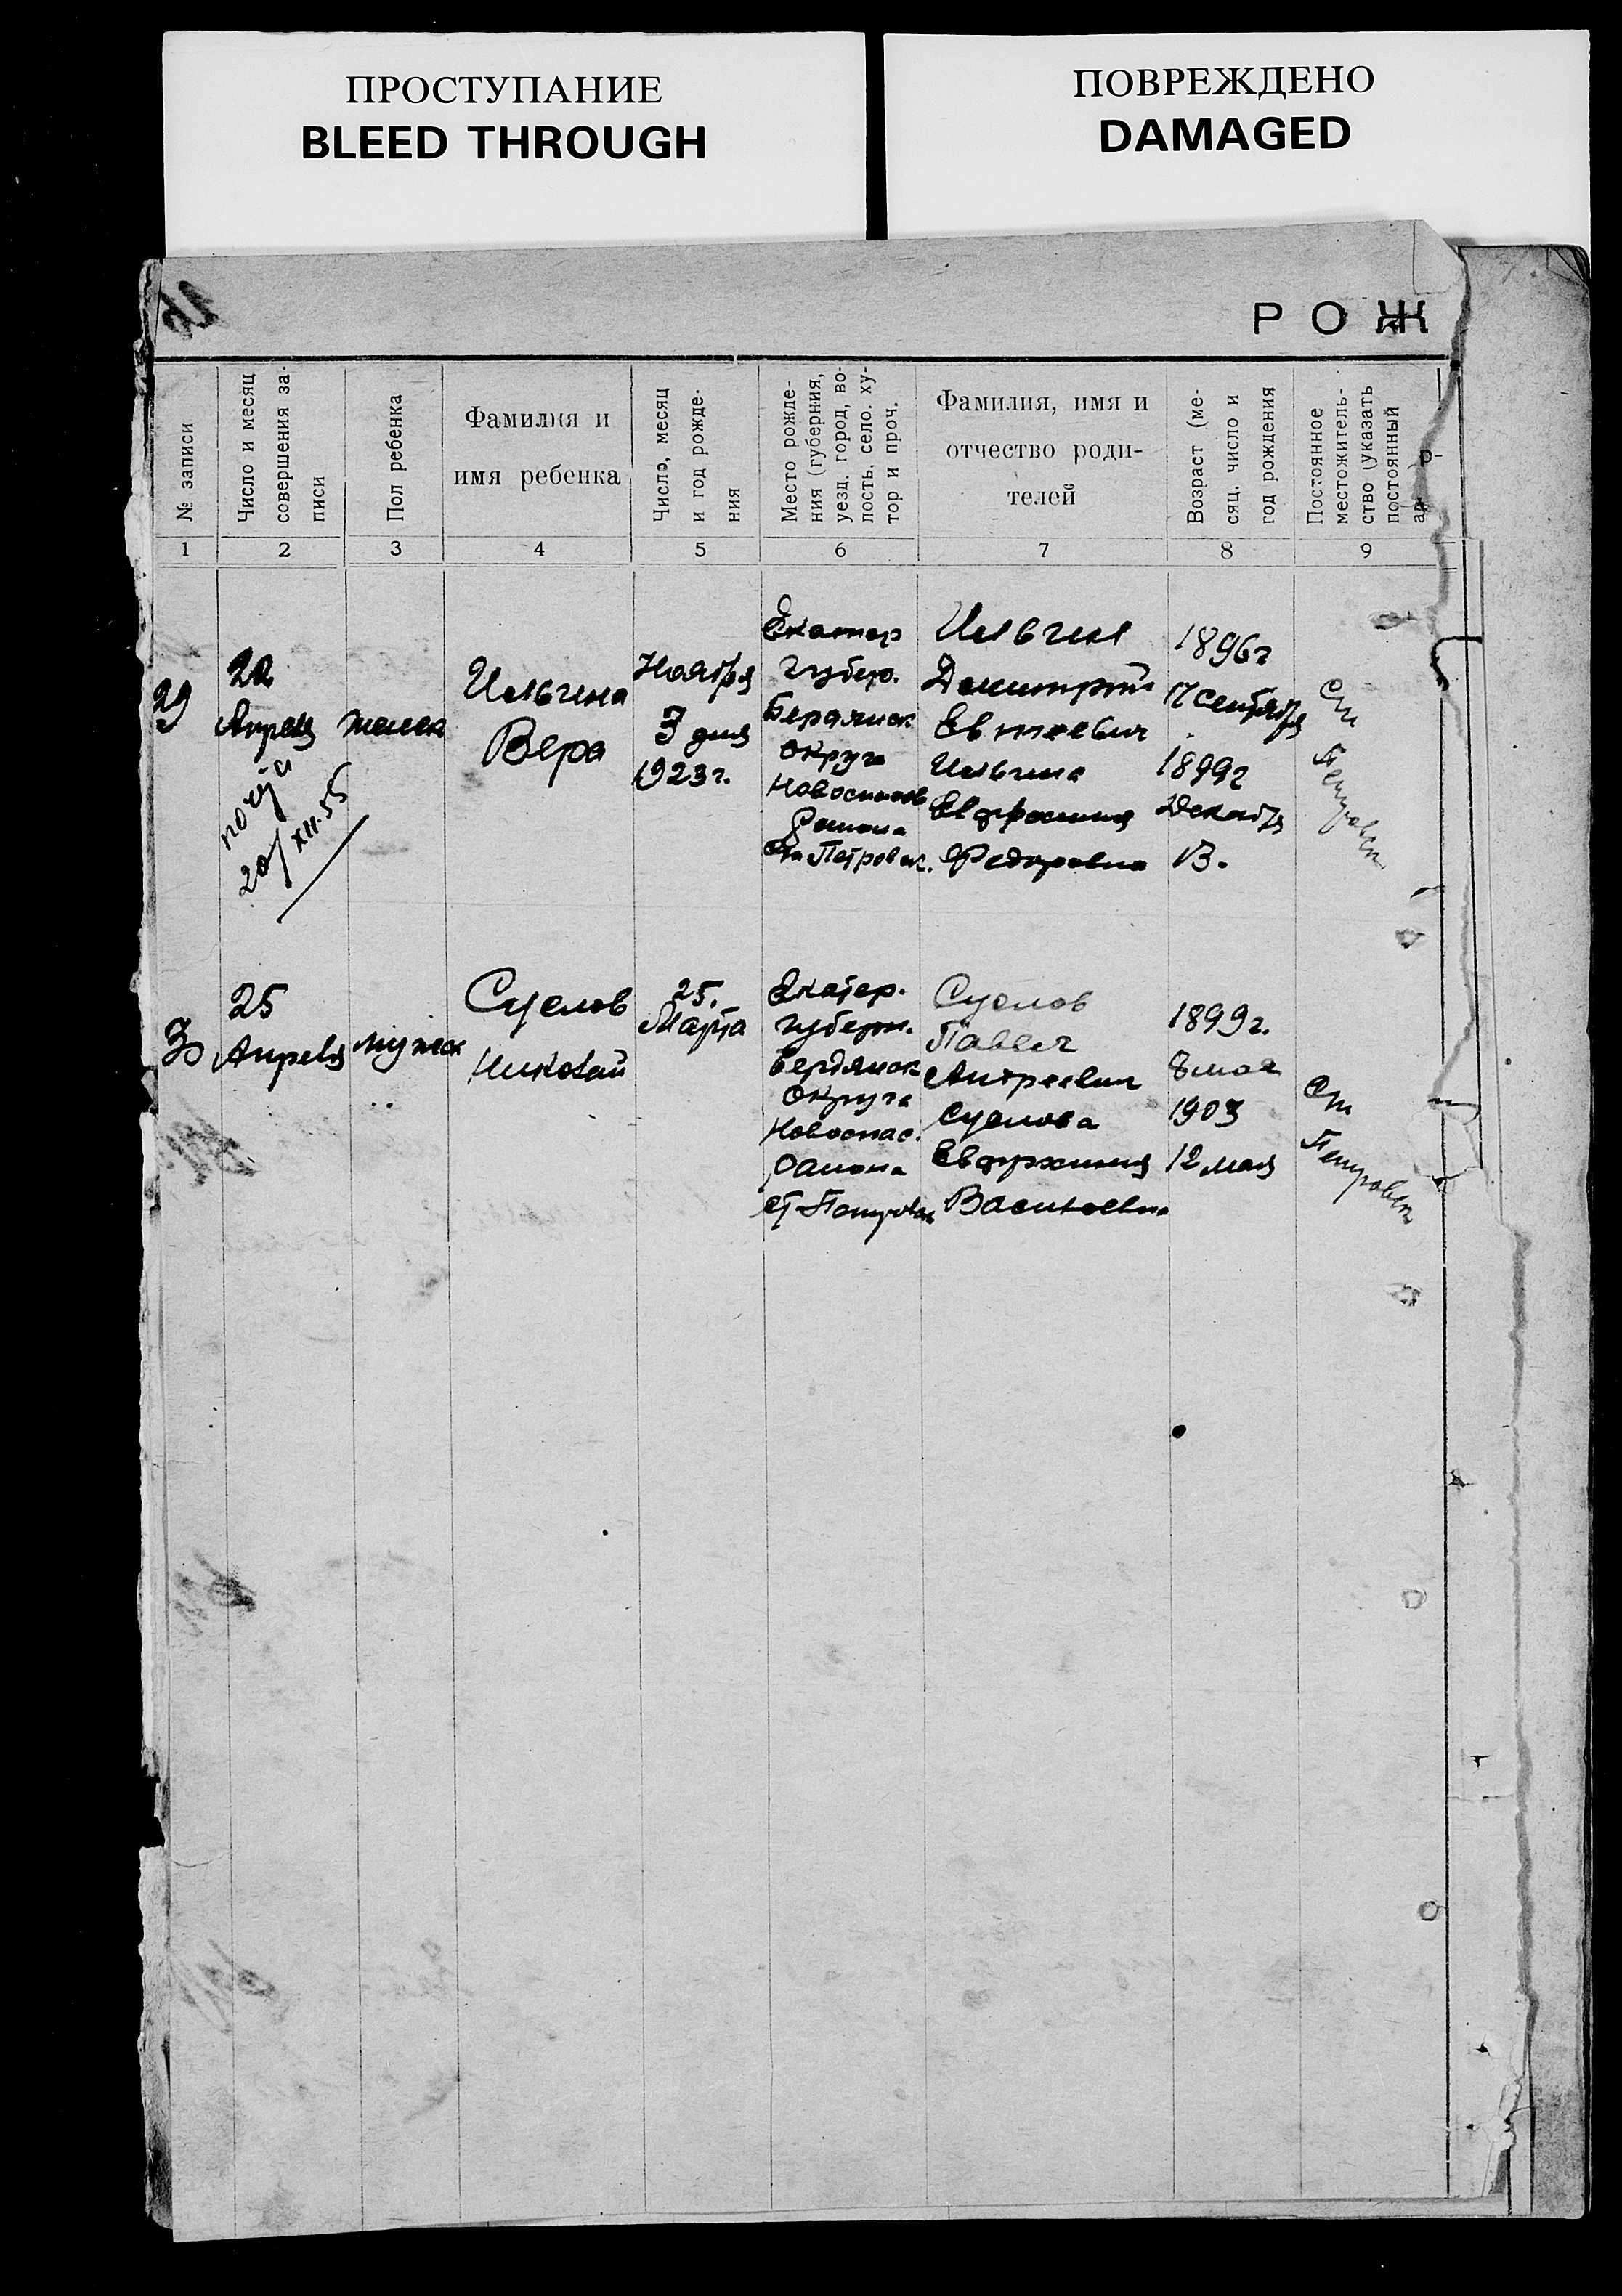 ПРОСТУПАНИЕ
BLEED THROUGH
ПОВРЕЖДЕНО
DAMAGED
РОЖ
№ записи
Число и месяц
совершения за-
писи
Пол ребенка
Фамилия и
имя ребенка
Число, месяц
и год рожде-
ния
Место рожде-
ния (губерния,
уезд, город, во-
лость, село, ху-
тор и проч.
Фамилия, имя и
отчество роди-
телей
Возраст (ме-
сяц, число и
год рождения
Постоянное
местожитель-
ство (указать
постоянный
1 2 3 4 5 6 7 8 9
29
22
Апреля
20/XII-55
женск
Ильгина
Вера
Ноября
3 дня
1923 г.
Екатер
губер.
Бердянск
округа
Новоспасов
Района
Ст Петровск.
Ильгин
Димитрий
Евтеевич
Ильгина
Евфросиния
Федоровна
1896 г
17 сентября
1899 г
Декабря
13.
Ст
Петровск
30
25
Апреля
мужск
Суслов
Николай
25.
Марта
Екатер.
губерн.
Бердянск
округа
Новоспас.
района
ст Петровск
Суслов
Павел
Андреевич
Суслова
Евфросиния
Васильевна
1899 г.
8 мая
1903
12 мая
Ст
Петровск